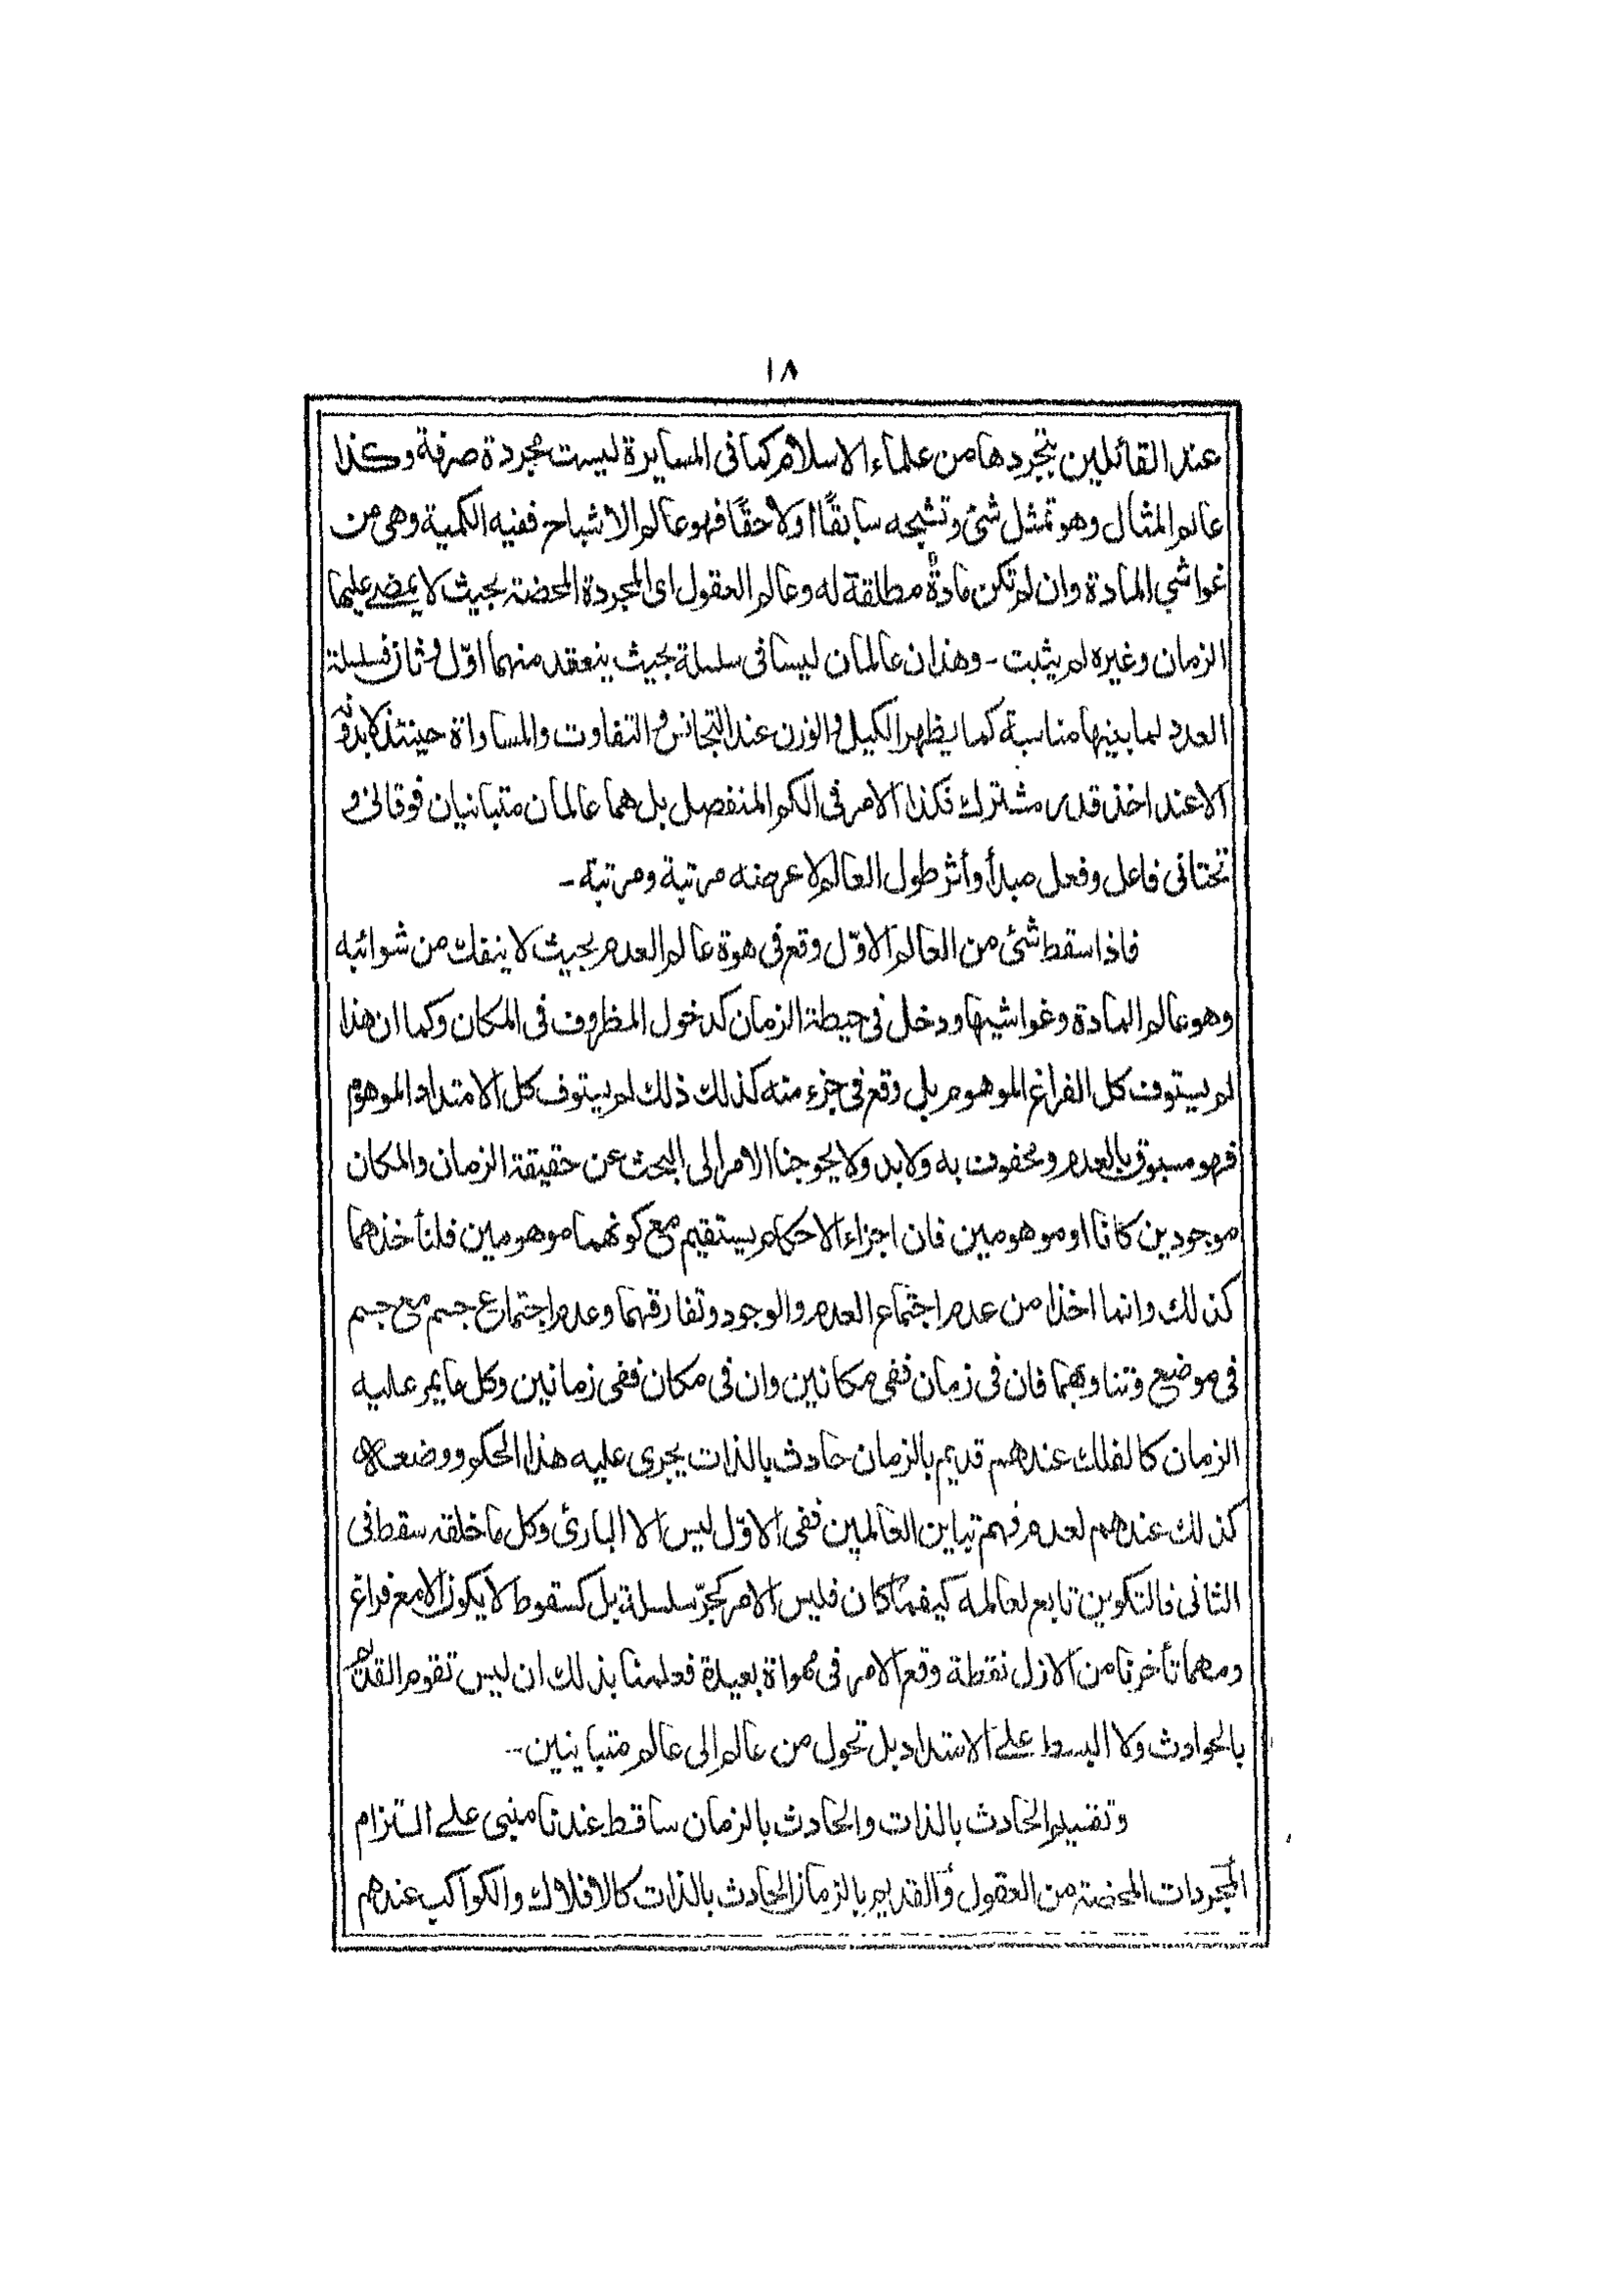 ١٨
عند القائلين بتجردها من علماء الاسلام كما فى المسايرة ليست مجردة صرفة وكذا
عالم المثال وهو تمثل شئ وتشبحه سابقًا او لاحقًا فهو عالم الاشباح ففيه الكمية وهى من
غواشي المادة وان لم تكن مادةً مطلقة له وعالم العقول اى المجردة المحضة بحيث لا يمضے عليها
الزمان وغيره لم يثبت - وهذان عالمان ليسا فى سلسلة بحيث ينعقد منهما اوّل وثان فسلسلة
العدد لما بينها مناسبة كما يظهر الكيل والوزن عند التجانس والتفاوت والمساواة حينئذ لا بدونه
الا عند اخذ قدر مشترك فكذا الامر فى الكم المنفصل بل هما عالمان متباينان فوقانى و
تحتانى فاعل وفعل مبدأ وأثر طول العالم لا عرضه مرتبة ومرتبة -
فاذا سقط شئ من العالم الاوّل وقع فى هوة عالم العدم بحيث لا ينفك من شوائبه
وهو عالم المادة وغواشيها ودخل فى حيطة الزمان كدخول المظروف فى المكان وكما ان هذا
لم يستوف كل الفراغ الموهوم بل وقع فى جزء منه كذلك ذلك لم يستوف كل الامتداد الموهوم
فهو مسبوق بالعدم ومحفوف به ولا بد ولا يحوجنا الامر الى البحث عن حقيقة الزمان والمكان
موجودين كانا او موهومين فان اجزاء الاحكام يستقيم مع كونهما موهومين فلنأخذهما
كذلك وانما اخذا من عدم اجتماع العدم والوجود وتفارقهما وعدم اجتماع جسم مع جسم
فى موضع وتناوبهما فان فى زمان ففى مكانين وان فى مكان ففى زمانين وكل ما يمر عليه
الزمان كالفلك عندهم قديم بالزمان حادث بالذات يجرى عليه هذا الحكم ووضعه
كذلك عندهم لعدم فهم تباين العالمين ففى الاوّل ليس الا البارئ وكل ما خلقه سقط فى
الثانى فالتكوين تابع لعالمه كيفما كان فليس الامر كجرّ سلسلة بل كسقوط لا يكون الا مع فراغ
ومهما تأخرنا من الازل نقطة وقع الامر فى مهواة بعيدة فعلمنا بذلك ان ليس تقوم القدم
بالحوادث ولا البسط علے الامتداد بل تحول من عالم الى عالم متباينين -
وتقسيم الحادث بالذات والحادث بالزمان ساقط عندنا منبى علے التزام
المجردات المحضة من العقول والقديم بالزمان الحادث بالذات كالافلاك والكواكب عندهم